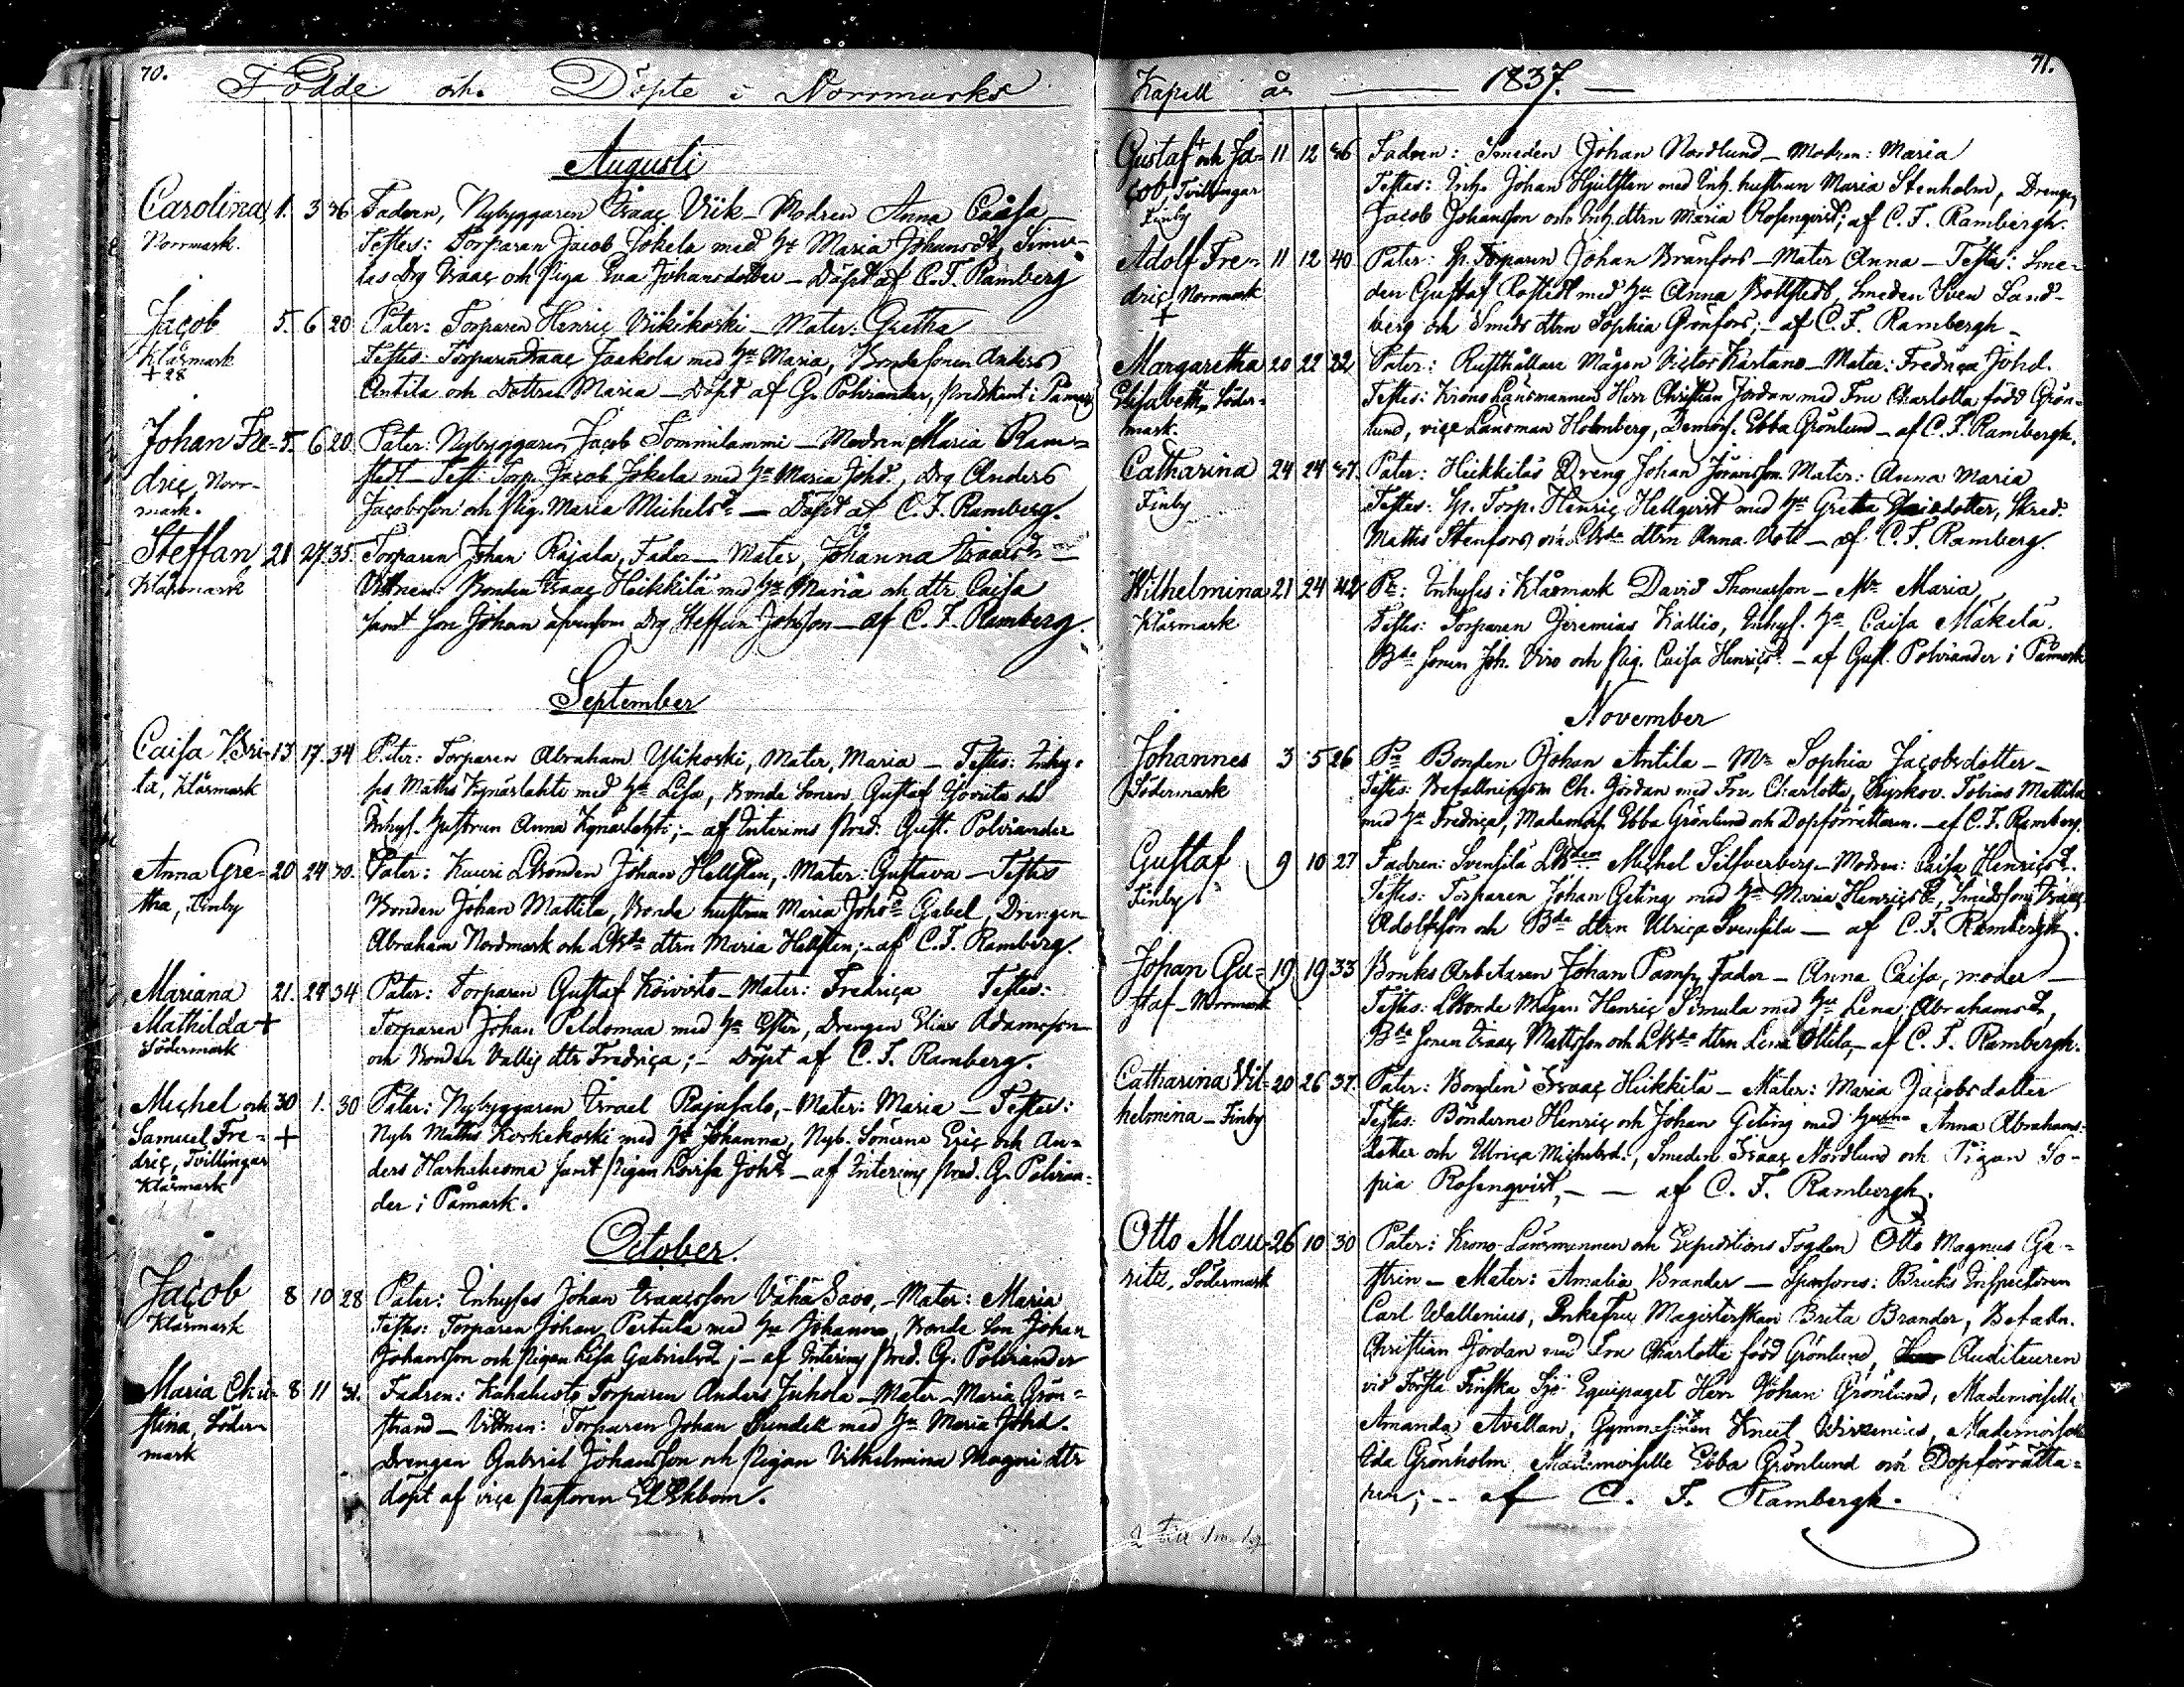 70.
Födde och Döpte i Norrmarks
Augusti
Carolina, 1. 3 36 Fadern, Nybyggaren Isaac Viik - Modren Anna Caisa
Norrmark. Testes: Torparen Jacob Jokela med Hu Maria Johansdr, Simu-
las Drg Isaac och Piga Eva Johansdotter - Döpt af C. F. Ramberg
Jacob 5. 6 20 Pater: Torparen Henric Viikikoski - Mater: Gretha
Klåsmark Testes: Torparen Isaac Jaakola med Hu Maria, Bonde sonen Anders
+ 28
Antila och Dottren Maria - Döpt af G. Polviander, Predikant i Påmark
Johan Fre- 5. 6 20 Pater: Nybyggaren Jacob Tommilammi - Modren Maria Ram-
dric, Norr- stedt - Test. Torp. Jacob Jokela med Hu Maria Johd., Drg Anders
mark. Jacobsson och Pig. Maria Michelsdr - Döpt af C. F. Ramberg.
Steffan, 21 27 35. Torparen Johan Rajala, Fader - Mater, Johanna Isaacsdr -
Klåsmark Vittnen: Bonden Isaac Heikkilä med Hu Maria och dtr Caisa
samt son Johan äfvensom Drg Steffan Johsson - af C. F. Ramberg.
September
Caisa Bri- 13. 17. 34 Pater: Torparen Abraham Ylikoski, Mater, Maria - Testes: Inhy-
ta, Klåsmark ses Maths Kynäslahti med Hu Lisa, Bonde Sonen Gustaf och
Inhys. Hustrun Anna Kynäslahti; - af Interims Pred. Gust. Polviander
Anna Gre- 20 24 30. Pater: Kauri LBonden Johan Hellsten, Mater: Gustava - Testes
tha, Finby Bonden Johan Mattila, Bonde hustrun Maria Johsdr Gabel, Drengen
Abraham Nordmark och LBde dtrn Maria Hellsten; - af C. F. Ramberg.
Mariana 21. 24 34 Pater: Torparen Gustaf Koivisto - Mater: Fredrica Testes:
Mathilda + Torparen Johan Peldomaa med Hu Ester, Drengen Elias Adamsson
Södermark och Bonden Vallis dtr Fredrica; - Döpt af C. F. Ramberg.
Michel och 30 1. 30 Pater: Nybyggaren Israel Rajasalo, - Mater: Maria - Testes:
Samuel Fre- + Nyb. Maths Koskikoski med Hu Johanna, Nyb. Sönerna Eric och An-
dric, Tvillingar ders Harhaluoma samt Pigan Lovisa Johd - af Interims Pred. G. Polvian-
Klåsmark der i Påmark.
October.
Jacob 8 10 28 Pater: Inhyses Johan Isaacsson Vähä Savo, - Mater: Maria
Klåsmark Testes: Torparen Johan Pertula med Hu Johanna, Bonde Son Johan
Johansson och Pigan Lisa Gabrielsd; - af Interims Pred. G. Polviander
Maria Chri- 8 11 31. Fadren: Kahaluoto Torparen Anders Juhola - Mater - Maria Grön-
stina, Söder- strand - Vittnen: Torparen Johan Sundell med Hu Maria Johd.
mark Drengen Gabriel Johansson och Pigan Vilhelmina Magni dtr
döpt af vice Pastoren Ekbom.
71.
Kapell år 1837.
Gustaf och Ja- 11 12 36 Fadren: Smeden Johan Nordlund - Modren: Maria
cob, Tvillingar Testes: Inh. Johan Hjulsten med Inh. hustrun Maria Stenholm, Drengen
Finby Jacob Johansson och Inh. dtrn Maria Rosenqvist; af C. F. Rambergh.
Adolf Fre- 11 12 40 Pater: Sp. Torparen Johan Branfors - Mater Anna - Testes: Sme-
dric, Norrmark den Gustaf Rostedt med Hu Anna Bollstedt, Smeden Sven Sand-
+ berg och Smeds dtrn Sophia Grönfors; - af C. F. Rambergh -
Margaretha 20 22 22 Pater: Rusthållare Mågen Victor Kartano - Mater: Fredrica Johd.
Elisabeth, Söder- Testes: Krono Länsmannen Herr Christian Jordan med Fru Charlotta född Grön-
mark. lund, vice Länsman Holmberg, Demois. Ebba Grönlund - af C. F. Rambergh.
Catharina 24 24 37. Pater: Heikkiläs Dreng Johan Göransson Mater: Anna Maria
Finby Testes: Sp. Torp. Henric Hellqvist med Hu Gretha dotter, Skred.
Maths Stenfors och dtrn Anna - af C. F. Ramberg.
Wilhelmina 21 24 42 Pr: Inhyses i Klåsmark David Thomasson - Mr Maria
Klåsmark Testes: Torparen Jeremias Kallio, Inhys. Hu Caisa Mäkelä.
Bde Sonen Joh. Viro och Pig. Caisa Henricsd. - af Gust. Polviander i Påmark
November
Johannes 3 5 26 Pr Bonden Johan Antila - Mr Sophia Jacobsdotter -
Södermark Testes: Befallningsm Ch. Jordan med Fru Charlotta, Kyrkov. Tobias Mattila
med Hu Fredrica, Mademois. Ebba Grönlund och Dopförrättaren. - af C. F. Ramberg.
Gustaf 9 10 27 Fadren: Svensilä LBden Michel Silfverberg - Modren: Caisa Henricsd.
Finby Testes: Torparen Johan Geting med Hu Maria Henricsdr, Smedsson Isaac
Adolfsson och Bde dtrn Ulrica Svensila - af C. F. Rambergh.
Johan Gu- 19 19 33 Bruks Arbetaren Johan Pamp, Fader - Anna Caisa, moder -
staf - Norrmark Testes: LBonde Mågen Henric Simula med Hu Lena Abrahamsdr,
Bde Sonen Isaac Mattsson och LBde dtrn Lena Ollila, - af C. F. Rambergh.
Catharina Vil- 20 26 37. Pater: Bonden Isaac Heikkilä - Mater: Maria Jacobsdotter
helmina - Finby Testes: Bönderne Henric och Johan Geting med Hustr Anna Abrahams-
dotter och Ulrica Michelsd., Smeden Isaac Nordlund och Pigan So-
phia Rosenqvist, - - af C. F. Rambergh.
Otto Mau- 26 10 30 Pater: Krono-Länsmannen och Expeditions Fogden Otto Magnus Ga-
ritz, Södermark strin - Mater: Amalia Brander - Sponsores: Bruks Inspectoren
Carl Wallenius, Enkefru Magisterskan Brita Brander, Befalln.
Christian Jordan med Fru Charlotta född Grönlund, Auditeuren
vid Första Finska Sjö Equipaget Herr Johan Grönlund, Mademoiselle
Amanda Avellan, Gymnasisten Knut Wirzenius, Mademoiselle
Ida Grönholm Mademoiselle Ebba Grönlund och Dopförrätta-
ren; - - af C. F. Rambergh.